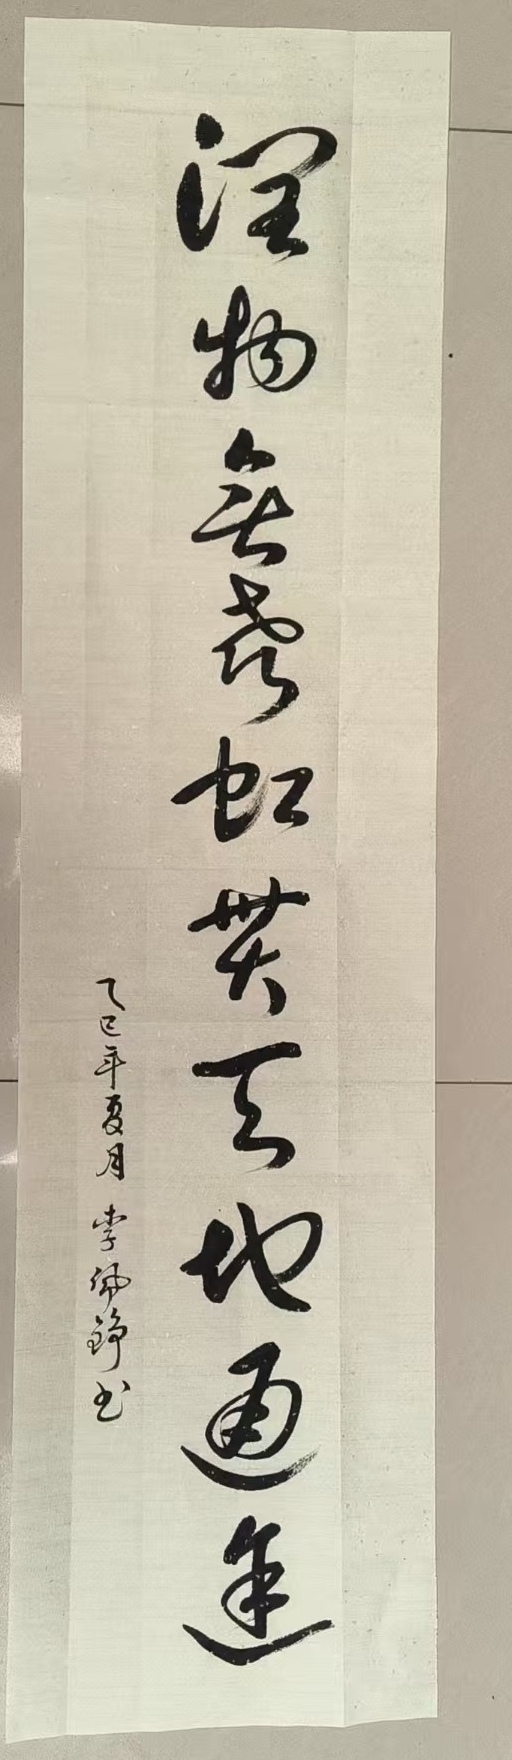 润物无声虹贯天地通途
乙巳年夏月 李佩铮书